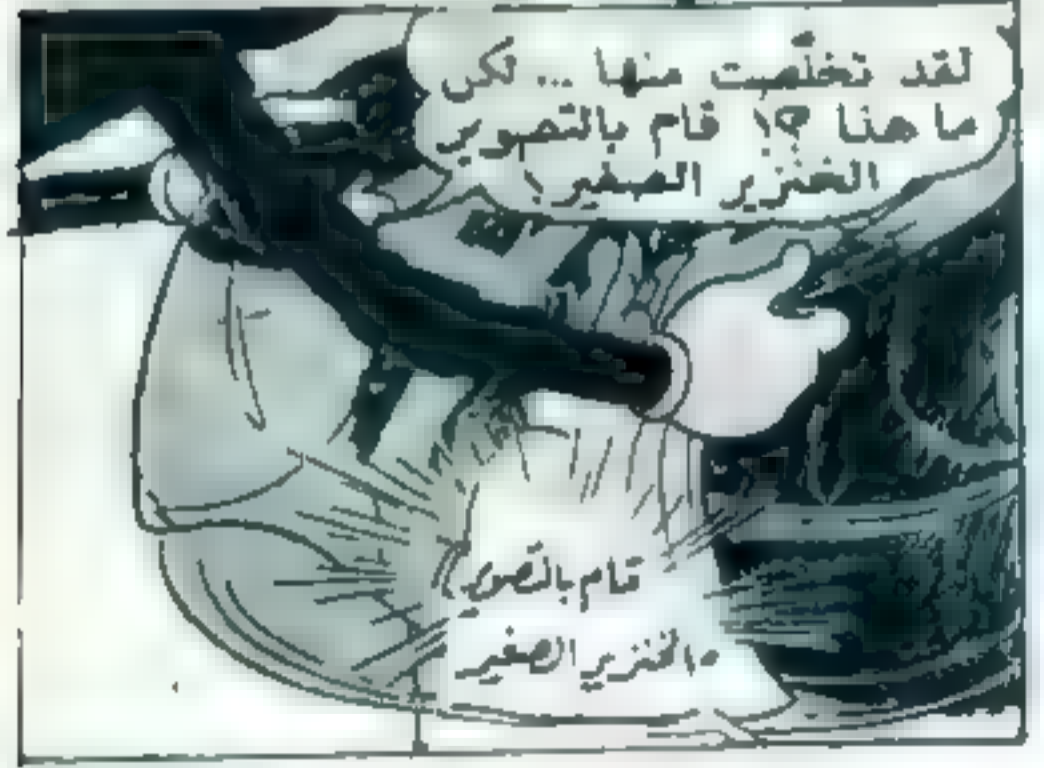 لقد تخلّصت منها ... لكن
ما هنا ؟! قام بالتصوير
الخنزير الصغير!
قام بالتصوير
الخنزير الصغير